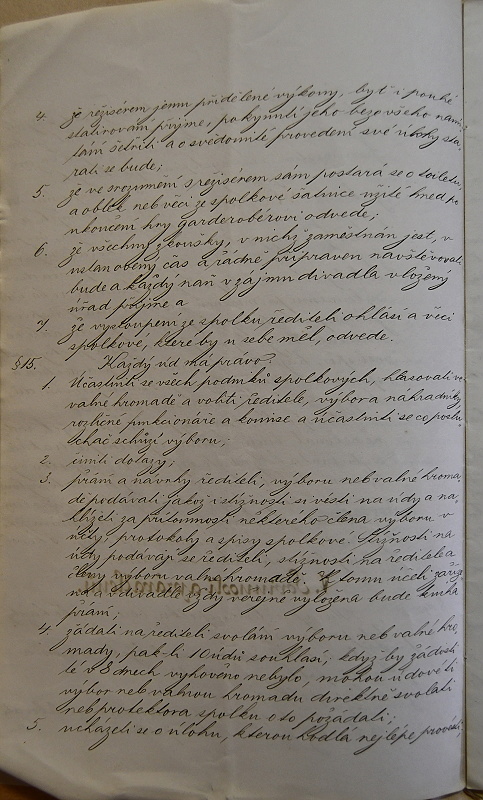 4. že režisérem jemu přidělené výkony, byť i pouhé
statirování přijme, pokynutí jeho beze všeho namí-
tání šetřiti a o svědomité provedení své úlohy sta-
rati se bude;
5. že ve srozumění s režisérem sám postará se o toiletu
a oblek neb věci ze spolkové šatnice užité hned po
ukončení hry garderobiérovi odvede;
6. že všechny zkoušky, v nichž zaměstnán jest, v
ustanovený čas a řádně připraven navštěvovati
bude a každý naň v zájmu divadla vložený
úřad přijme a
7. že vystoupení ze spolku řediteli ohlásí a věci
spolkové, které by u sebe měl, odvede.
§ 15. Každý úd má právo:
1. Účastniti se všech podniků spolkových, hlasovati ve
valné hromadě a voliti ředitele, výbor a náhradníky,
rozličné funkcionáře a komise a účastniti se co poslu-
chač schůzí výboru;
2. činiti dotazy;
3. přání a návrhy řediteli, výboru neb valné hroma-
dě podávati jakož i stížnosti si vésti na údy a na-
hlížeti za přítomnosti některého člena výboru v
účty, protokoly a spisy spolkové. Stížnosti na
údy podávají se řediteli, stížnosti na ředitele a
členy výboru valné hromadě. K tomu účeli
v divadle vždy veřejně vyložena bude kniha
přání;
4. žádati na řediteli svolání výboru neb valné hro-
mady, pak-li 10 údů souhlasí; když by žádosti
té v 8 dnech vyhověno nebylo, mohou údové ti
výbor neb valnou hromadu direktně svolati
neb protektora spolku o to požádati;
5. ucházeti se o úlohu, kterou hodlá nejlépe provésti;